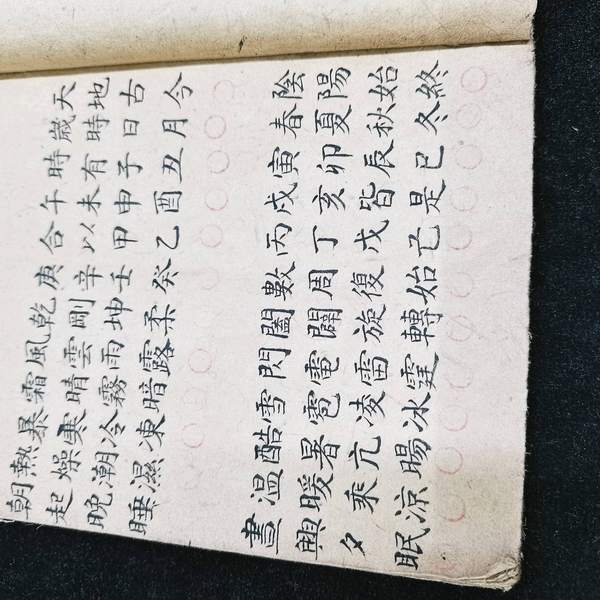 天地古今陰陽始終
歲時日月春夏秋冬
時有子丑寅卯辰巳
午未申酉戌亥皆是
合以甲乙丙丁戊己
庚辛壬癸數周復始
乾剛坤柔闔闢旋轉
風雲雨露閃電雷霆
霜晴霧暗雪雹凌冰
暴寒冷凍酷暑亢暘
熱燥潮濕溫暖乘涼
朝起晚睡晝興夕眠